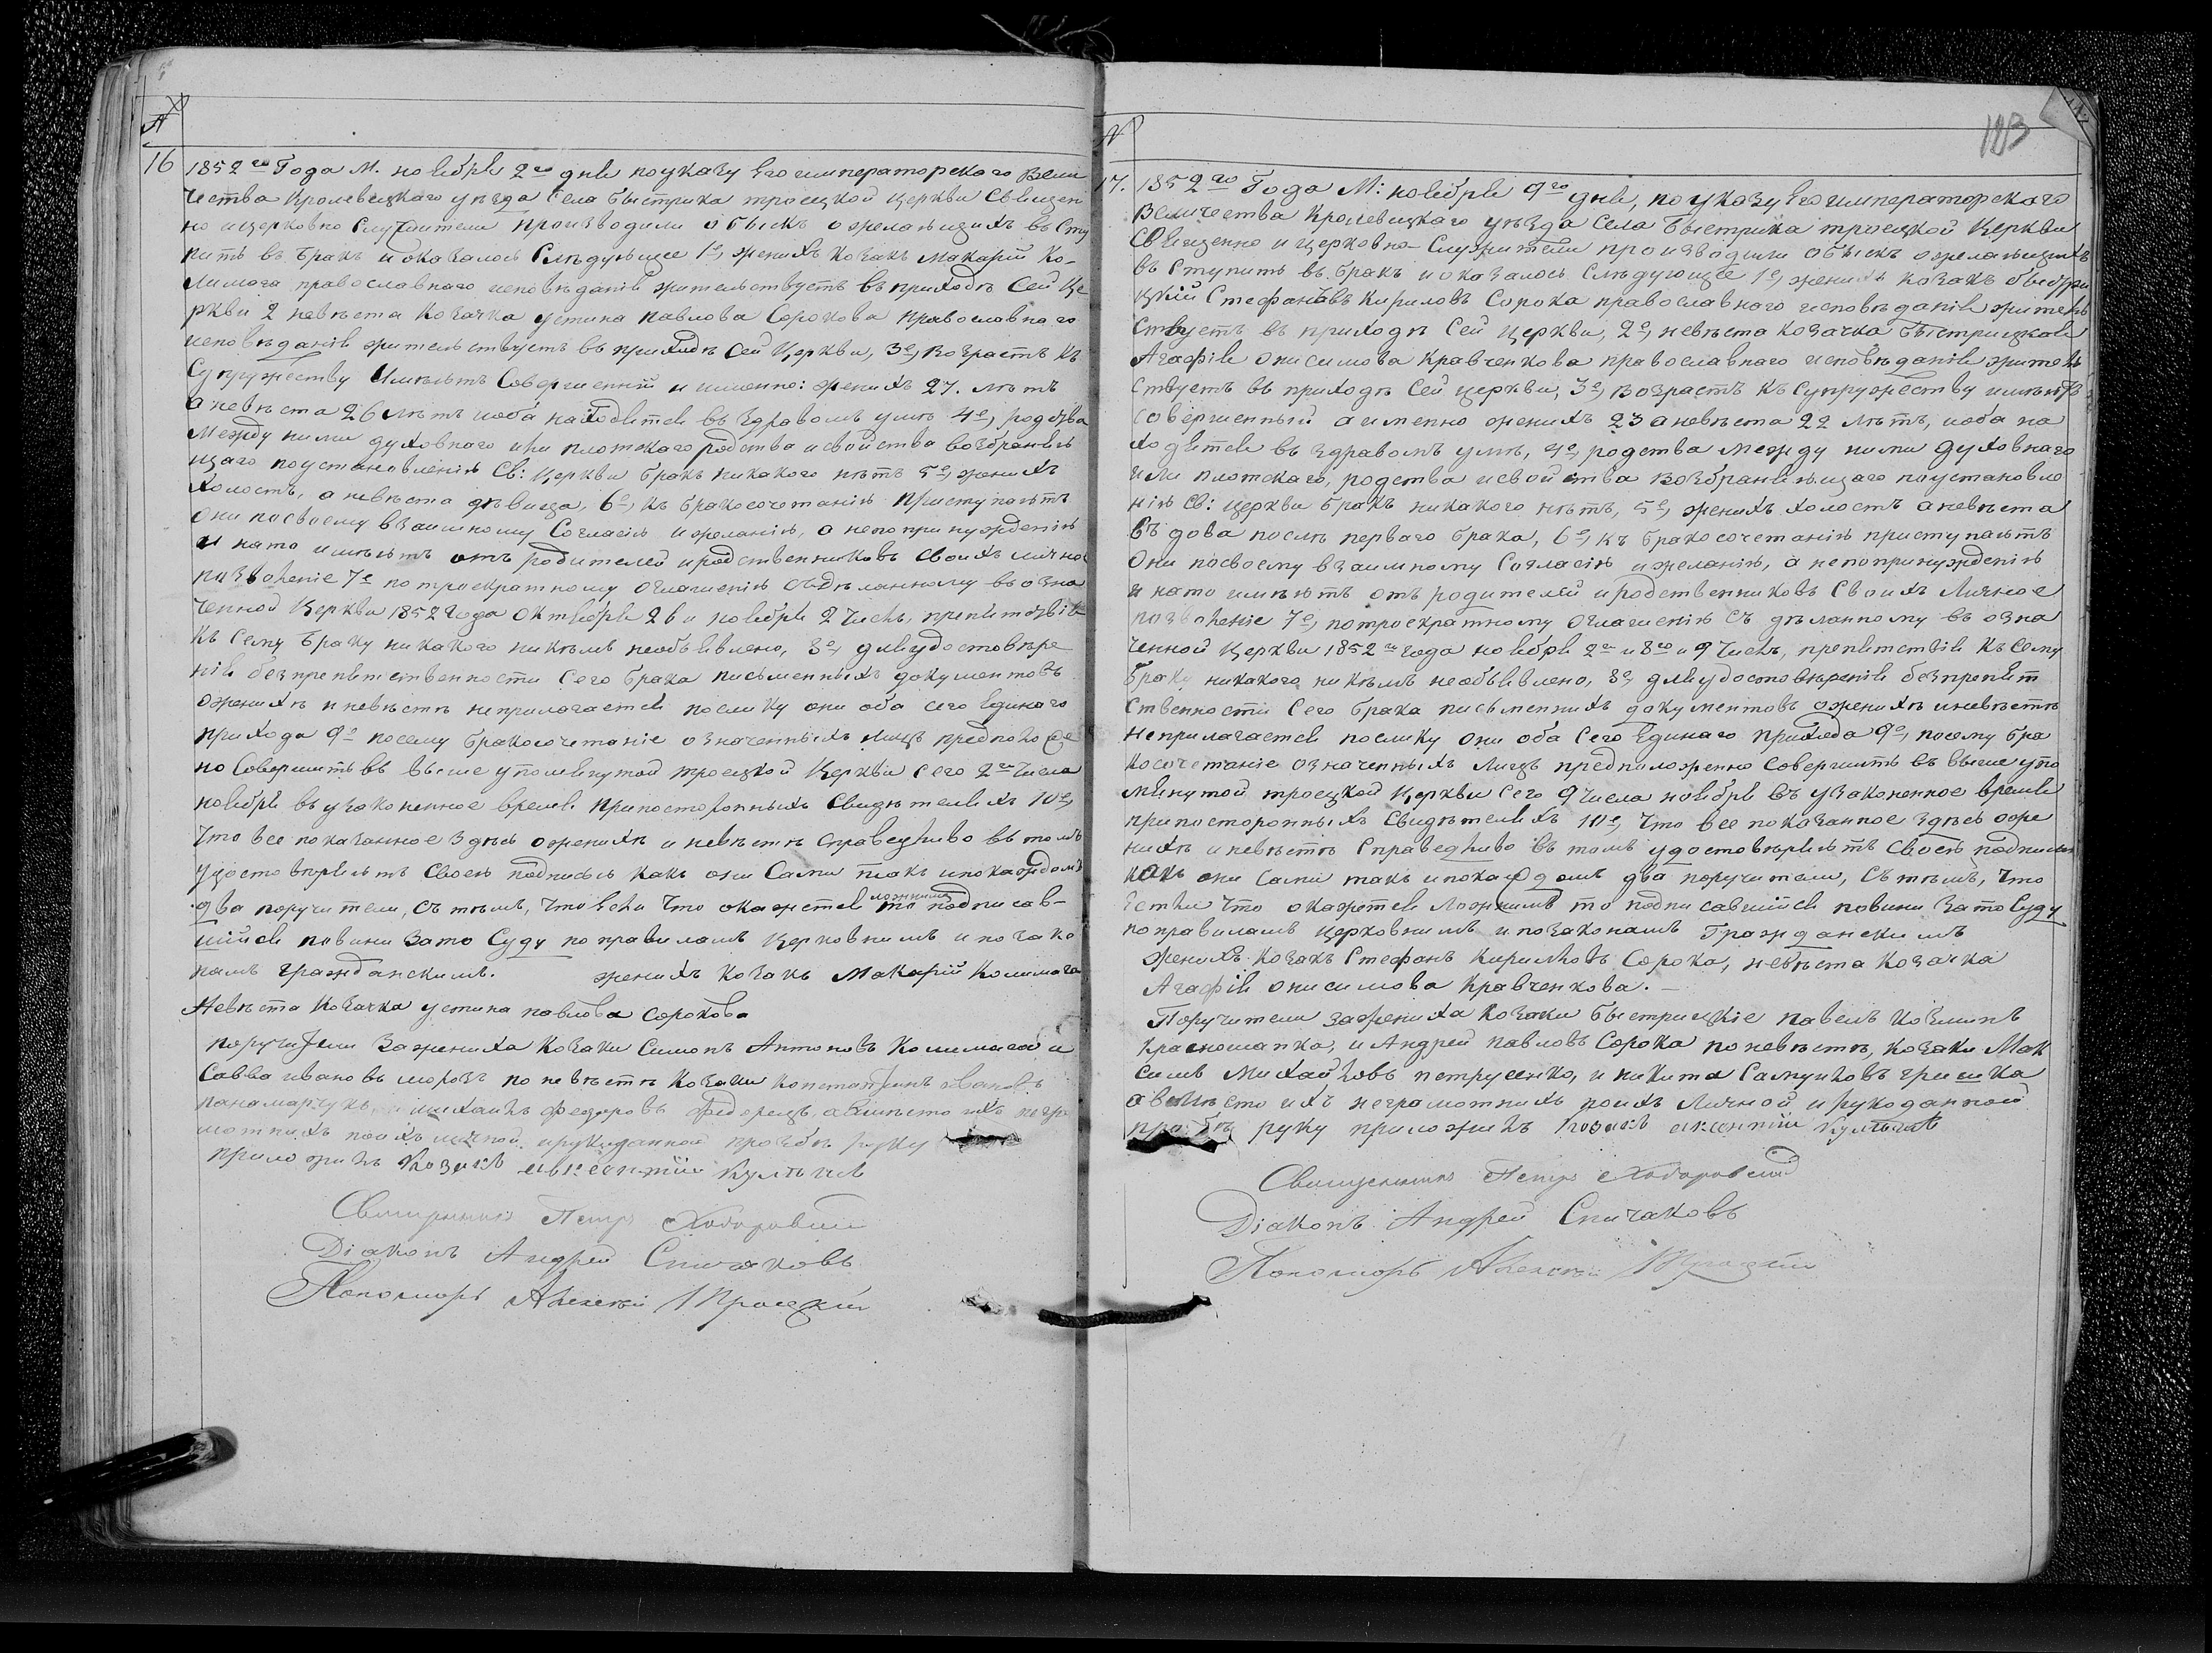 №
16 1852го Года М. ноября 2го дня по указу Его императорского Вели
чества Кролевецкаго уезда Села Быстрика троецкой церкви Священ
но ицерковно Служители производили обыскъ ожелающихъ въ Сту
пить въ бракъ и оказалось Следующее 1е, женихъ козакъ Макарій Ко-
лимага православнаго исповѣданія жительствуетъ въ приходѣ Сей Це
ркви 2 невѣста Козачка устина павлова Сорокова православнаго
исповѣданія жительствуетъ въ приходѣ Сей Церкви, 3е, возрастъ къ
Супружеству Имѣютъ Совершенній и именно: женихъ 27. лѣтъ
а невѣста 26 лѣтъ иоба находятся въ здравомъ умѣ 4е, родства
Между ними духовнаго или плотскаго родства исвойства возбраняю
щаго поустановленію Св: Церкви бракъ никакого нѣтъ 5е, женихъ
Холостъ, а невѣста дѣвица, 6е, къ бракосочетанію приступаютъ
Они посвоему взаимному Согласію ижеланію, а непопринужденію
и нато имѣютъ отъ родителей иродственниковъ своихъ лично
позволеніе 7е потроекратному оглашенію сдѣланному въ озна
ченной Церкви 1852 года октября 26 и ноября 2 Числъ, препятствія
къ сему браку никакого никѣмъ необъявлено, 8е, дляудостовѣре
нія безпрепятственности сего брака письменныхъ документовъ
оженихѣ и невѣстѣ неприлогается поелику они оба сего Единаго
прихода 9е посему бракосочетаніе означенныхъ лицъ предположе
но Совершить въ выше упомянутой троецкой Церкви сего 2го Числа
ноября въ узаконенное время припосторонныхъ Свидѣтеляхъ 10е,
Что все показанное здѣсь оженихѣ и невѣстѣ справедливо въ томъ
удостовѣряютъ Своею подписью какъ они Сами такъ ипокаждомъ
два поручители, съ тѣмъ, что Если Что окажется ложнимъ то подписав-
шійся повини зато Суду поправиламъ Церковнимъ и позако
намъ гражданскимъ. женихъ козакъ Макарій Колимага
Невѣста Козачка устина павлова Сорокова
поручители Зажениха Козаки Симонъ Антоновъ Колимага и
Савва ивановъ морозъ по невѣстѣ козаки константинъ ивановъ
панамарчукъ, и михаилъ федоровъ федорецъ, авмѣсто ихъ негра
мотнихъ поихъ личной ирукоданной прозбѣ руку
приложилъ Козакъ авксентій Кулѣша
Священникъ Петръ Ходоровский
Діаконъ Андрей Спичаковъ
Пономарь Алексѣй Троецкій
№
123
17. 1852го Года М: ноября 9го дня, по указу Его императорского
Величества Кролевецкаго уѣзда села Быстрика троецкой Церкви
Священно и церковно-Служители производили обыскъ ожелающихъ
въ Ступить въ бракъ и оказалось Слѣдующее 1е, женихъ козакъ быстри
цкій Стефанъ Кириловъ Сорока православного исповѣданія житель
ствуетъ въ приходѣ Сей церкви, 2е, невѣста козачка быстрицкая
Агафія Онисимова Кравченкова православнаго исповѣданія житель
ствуетъ въ приходѣ Сей церкви, 3е, возрастъ къ Супружеству имѣютъ
Совершенный а именно женихъ 23 аневѣста 22 лѣтъ, иоба на
ходятся въ здравомъ умѣ, 4е, родства между ними духовнаго
или плотскаго, родства исвойства возбраняющаго поустановле
нію Св: Церкви бракъ никакого нѣтъ, 5е, женихъ холостъ аневѣста
въдова послѣ перваго брака, 6е, къ бракосочетанію приступаютъ
Они посвоему взаимному Согласію ижеланію, а непопринужденію
и нато имѣютъ отъ родителей иродственниковъ Своихъ Личное
позволеніе 7е, потроекратному оглашенію съ дѣланному въ озна
ченной Церкви 1852го года ноября 2го и 8го и 9 Числъ, препятствія къ Сему
браку никакого никѣмъ необъявлено, 8е, дляудостовѣренія безпрепят
ственности сего брака письменнихъ документовъ оженихѣ иневѣстѣ
неприлагается поелику они оба Сего Единаго прихода 9е, посему бра
косочетаніе означенныхъ Лицъ предположенно Совершить въ выше упо
мянутой троецкой Церкви сего 9 числа ноября въ узаконенное время
припосторонныхъ Свидѣтеляхъ 10е, Что все показанное здѣсь оже
нихѣ и невѣстѣ Справедливо въ томъ удостовѣряютъ Своею подписью
какъ они сами такъ ипокаждомъ два поручители, Съ тѣмъ, что
Естли что окажется Ложнимъ то подписавшійся повини зато Суду
поправиламъ церковнимъ и позаконамъ Гражданскимъ
женихъ Козакъ Стефанъ Кириловъ Сорока, невѣста Козачка
Агафія онисимова Кравченкова.—
Поручители зажениха Козаки быстрицкіе павелъ козминъ
Красношапка, и Андрей павловъ Сорока по невѣстѣ, козаки Мак
симъ Михайловъ петрусенко, и никита Самуиловъ гришка
авмѣсто ихъ неграмотнихъ поихъ личной и рукоданной
прозбѣ руку приложилъ Козакъ авксентій Кулѣша
Священникъ Петръ Ходоровский
Діаконъ Андрей Спичаковъ
Пономарь Алексѣй Троецкій